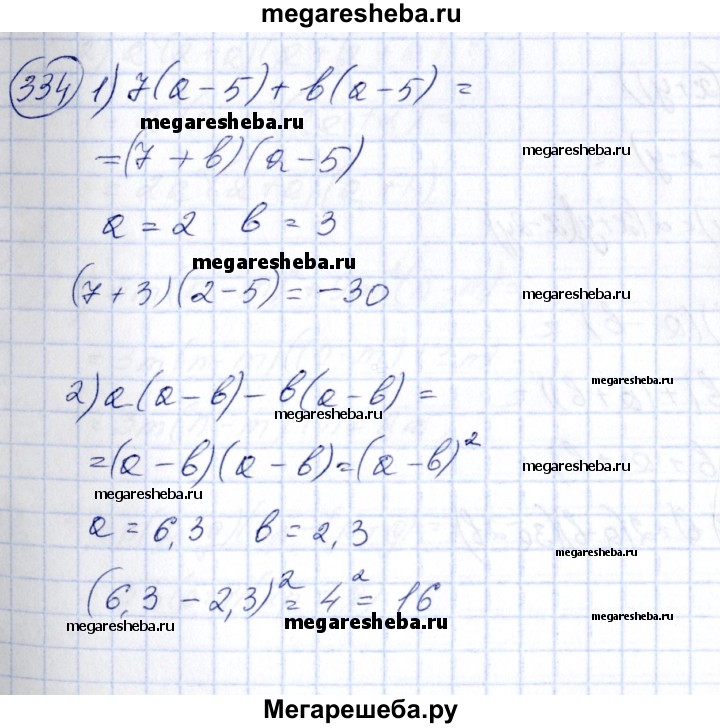 megaresheba.ru
334 1) 7(a-5)+b(a-5)=
megaresheba.ru
=(7+b)(a-5) megaresheba.ru
a=2 b=3
megaresheba.ru
(7+3)(2-5)=-30 megaresheba.ru
2) a(a-b)-b(a-b)= megaresheba.ru
megaresheba.ru
=(a-b)(a-b)=(a-b)² megaresheba.ru
megaresheba.ru
a=6,3 b=2,3
megaresheba.ru
(6,3-2,3)²=4²=16 megaresheba.ru
megaresheba.ru megaresheba.ru
Мегарешеба.ру